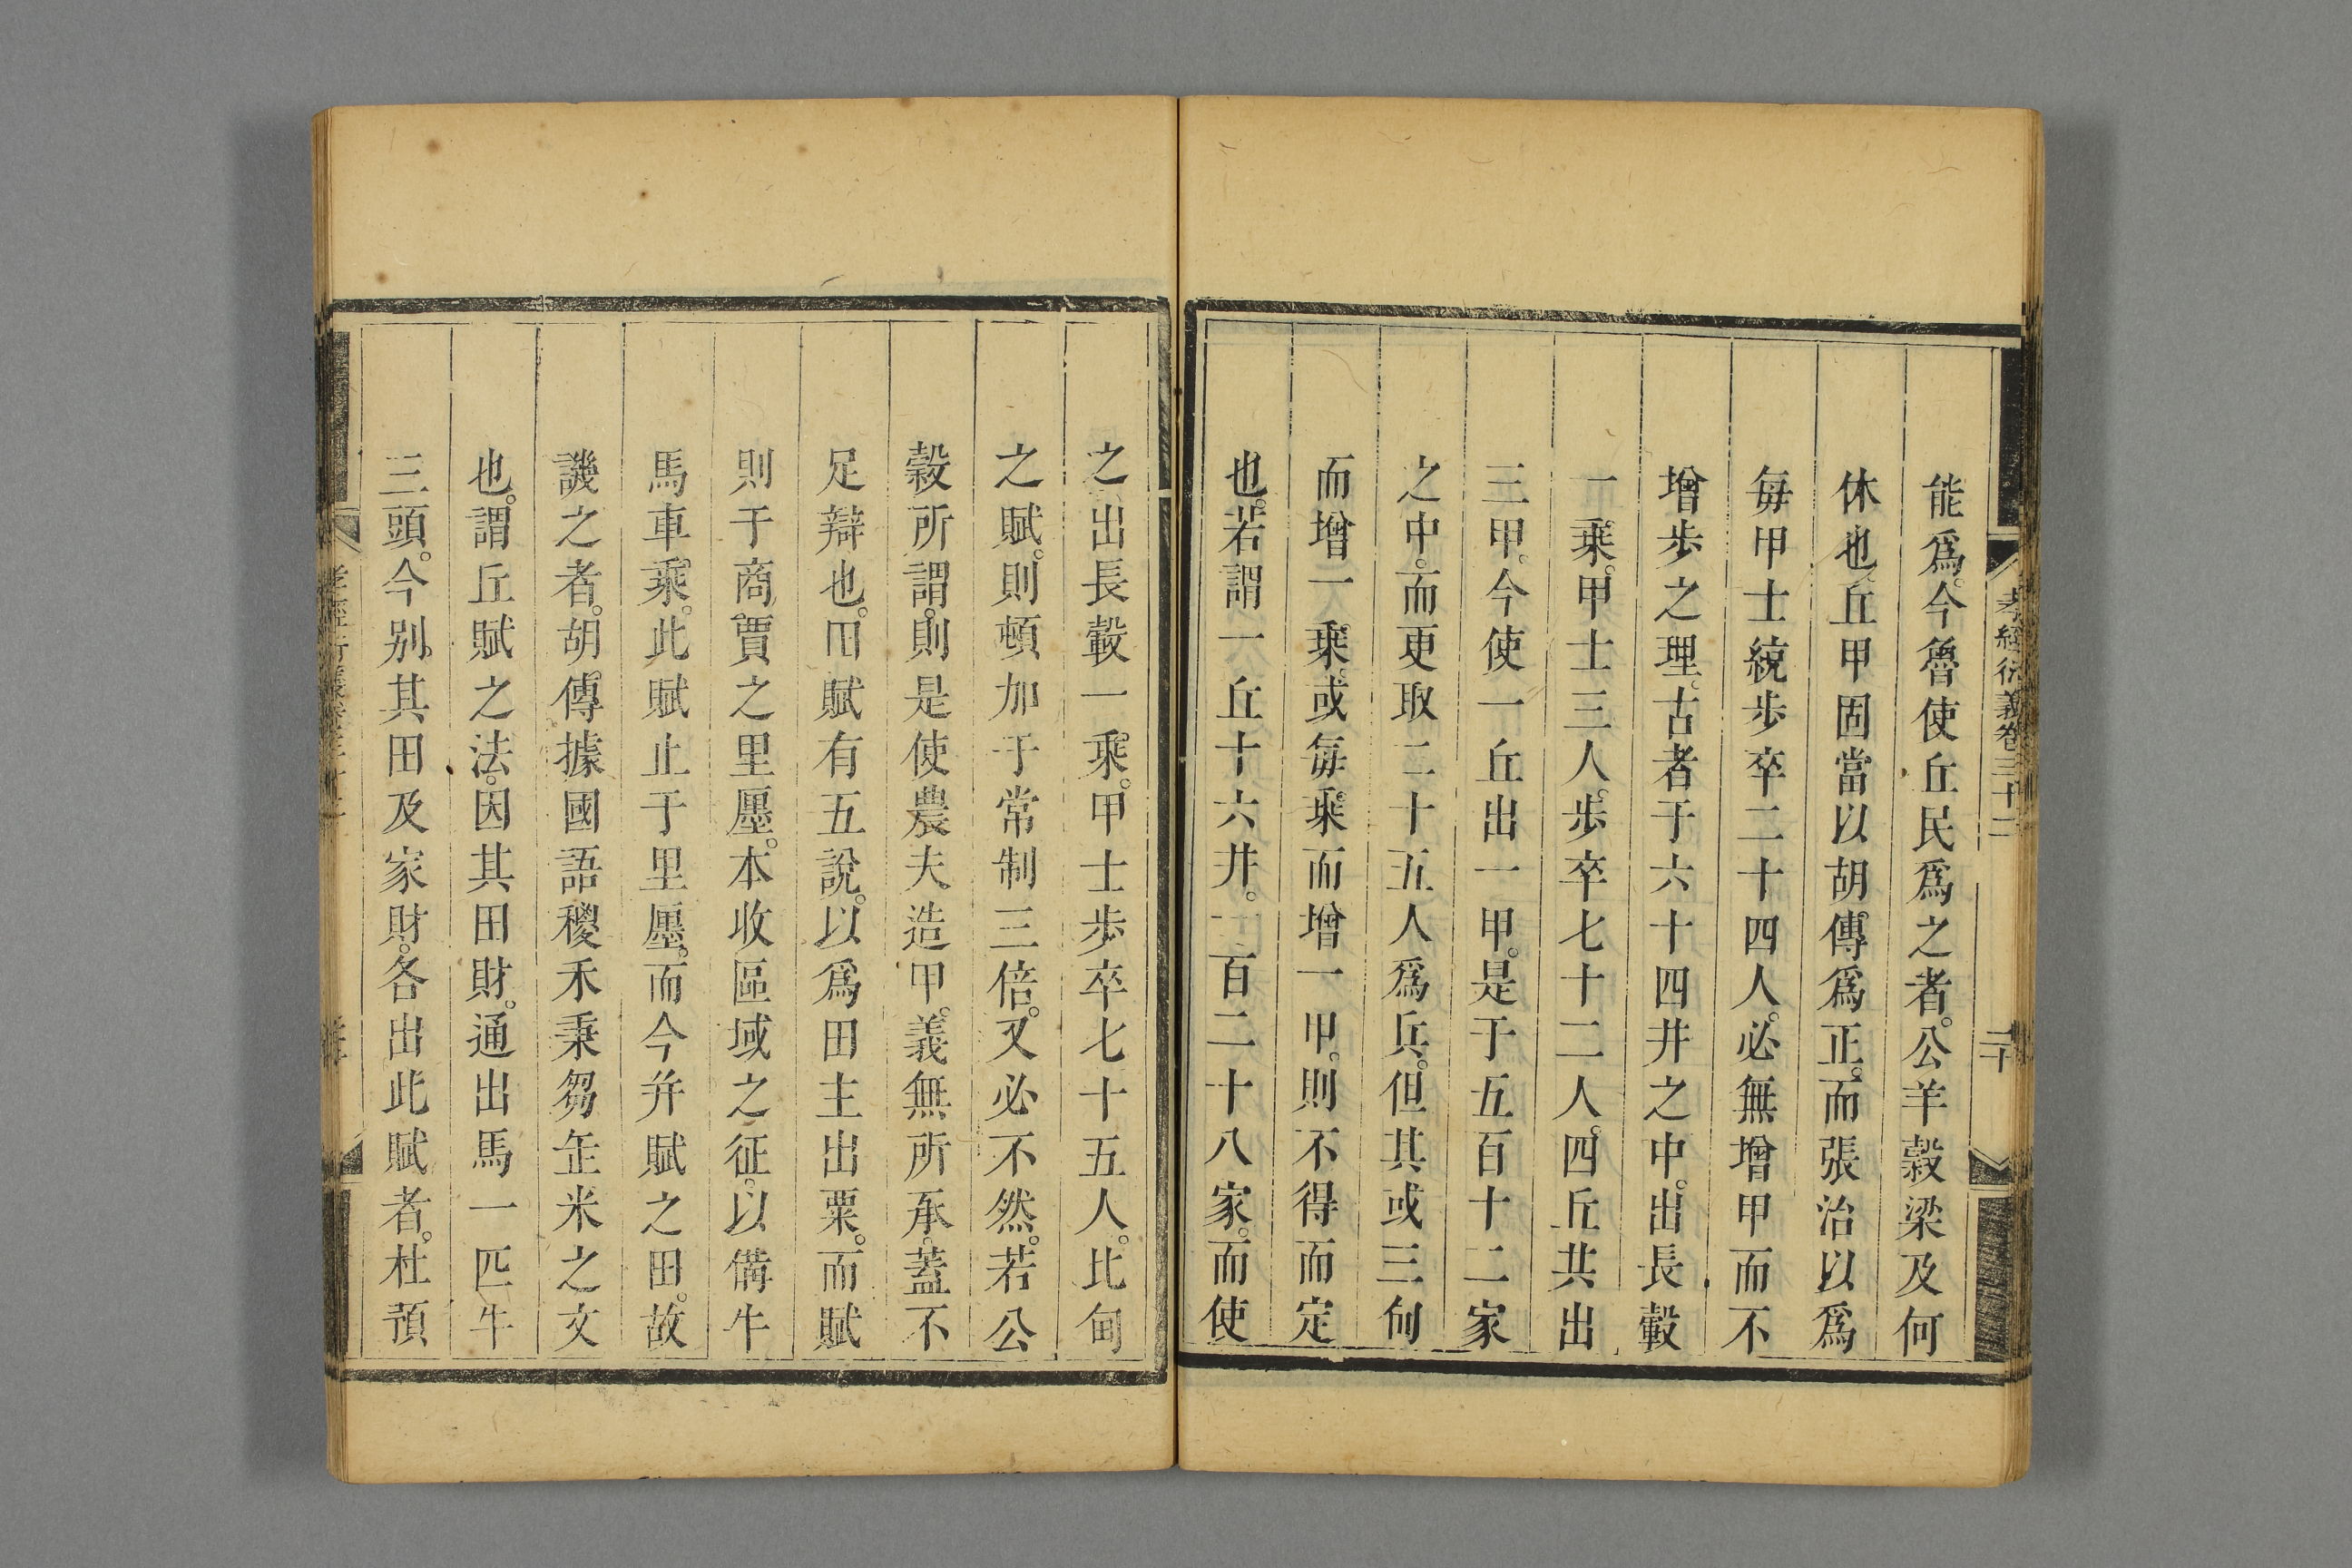 孝經衍義卷三十二
二十
能爲。今魯使丘民爲之者。公羊穀梁及何
休也。丘甲固當以胡傳爲正。而張治以爲
每甲士統步卒二十四人。必無增甲而不
增步之理。古者于六十四井之中。出長轂
一乘。甲士三人。步卒七十二人。四丘共出
三甲。今使一丘出一甲。是于五百十二家
之中。而更取二十五人爲兵。但其或三甸
而增一乘。或每乘而增一甲。則不得而定
也。若謂一丘十六井。一百二十八家。而使
之出長轂一乘。甲士步卒七十五人。比甸
之賦。則頓加于常制三倍。又必不然。若公
穀所謂。則是使農夫造甲。義無所承。蓋不
足辯也。田賦有五說。以爲田主出粟。而賦
則于商賈之里廛。本收區域之征。以備牛
馬車乘。此賦止于里廛。而今并賦之田。故
譏之者。胡傳據國語稷禾秉芻缶米之文
也。謂丘賦之法。因其田財。通出馬一匹牛
三頭。今别其田及家財。各出此賦者。杜預